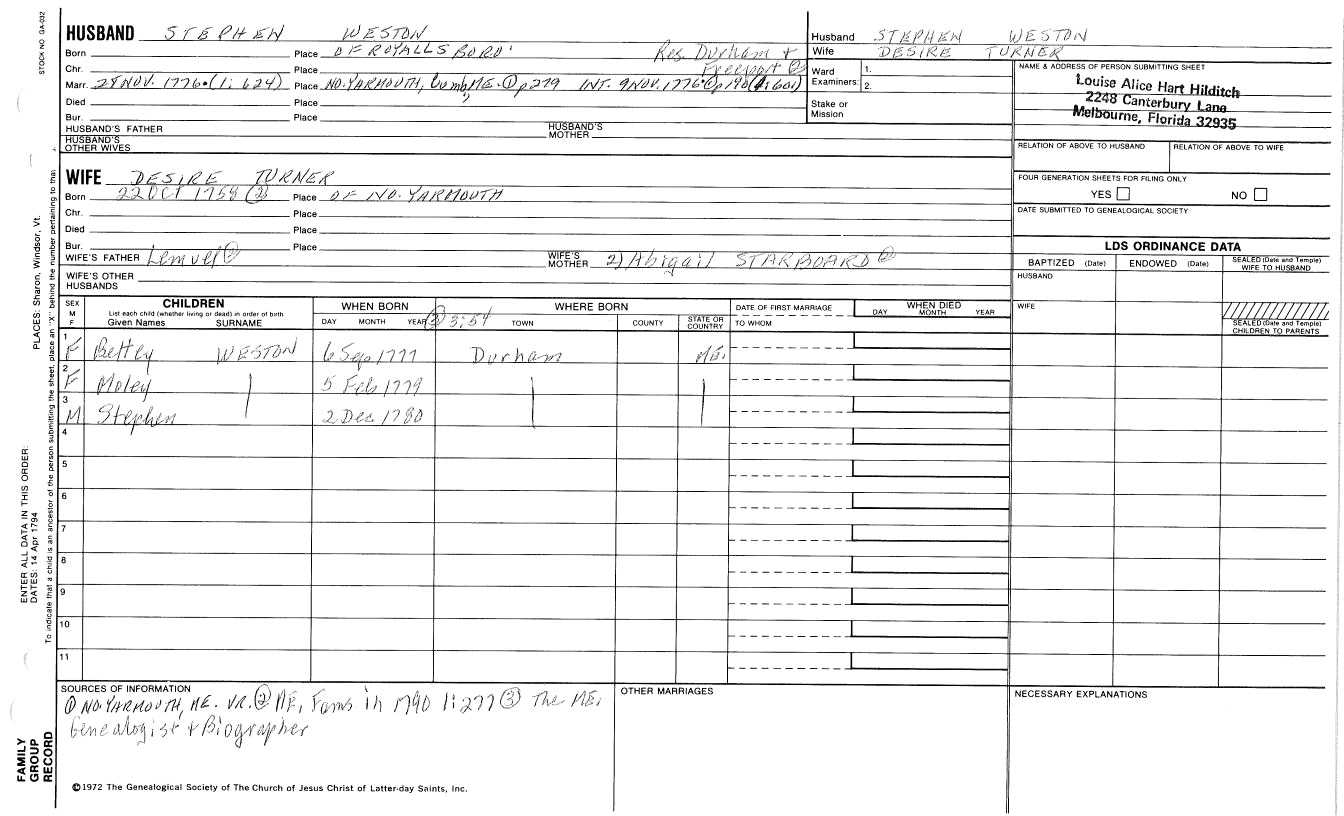 STOCK NO. GA-032
HUSBAND STEPHEN WESTON
Born Place OF ROYALLSBORO' Res. Durham +
Chr. Place Freeport ②
Marr. 28 NOV. 1776 • (1; 624) Place NO. YARMOUTH, Cumb, ME. ① p 279 INT. 9 NOV. 1776 • ① p 190 (1; 601)
Died Place
Bur. Place
HUSBAND'S FATHER HUSBAND'S MOTHER
HUSBAND'S OTHER WIVES
Husband STEPHEN WESTON
Wife DESIRE TURNER
Ward Examiners: 1.
2.
Stake or Mission
NAME & ADDRESS OF PERSON SUBMITTING SHEET
Louise Alice Hart Hilditch
2248 Canterbury Lane
Melbourne, Florida 32935
RELATION OF ABOVE TO HUSBAND RELATION OF ABOVE TO WIFE
FOUR GENERATION SHEETS FOR FILING ONLY
YES NO
DATE SUBMITTED TO GENEALOGICAL SOCIETY
WIFE DESIRE TURNER
Born 22 OCT 1758 (2) Place OF NO. YARMOUTH
Chr. Place
Died Place
Bur. Place
WIFE'S FATHER Lemuel ② WIFE'S MOTHER 2) Abigail STARBOARD ②
WIFE'S OTHER HUSBANDS
LDS ORDINANCE DATA
BAPTIZED (Date) ENDOWED (Date) SEALED (Date and Temple) WIFE TO HUSBAND
HUSBAND
WIFE
SEALED (Date and Temple) CHILDREN TO PARENTS
SEX M F CHILDREN WHEN BORN WHERE BORN DATE OF FIRST MARRIAGE WHEN DIED
List each child (whether living or dead) in order of birth
Given Names SURNAME DAY MONTH YEAR ③ 3:54 TOWN COUNTY STATE OR COUNTRY TO WHOM DAY MONTH YEAR
1 F Bettey WESTON 6 Sep 1777 Durham ME.
2 F Moley 5 Feb 1779
3 M Stephen 2 Dec 1780
4
5
6
7
8
9
10
11
SOURCES OF INFORMATION
① NO. YARMOUTH, ME. VR. ② ME. Fams in 1790 1:277 ③ The ME.
Genealogist + Biographer
OTHER MARRIAGES
NECESSARY EXPLANATIONS
©1972 The Genealogical Society of The Church of Jesus Christ of Latter-day Saints, Inc.
PLACES: Sharon, Windsor, Vt.
ENTER ALL DATA IN THIS ORDER:
DATES: 14 Apr 1794
To indicate that a child is an ancestor of the person submitting the sheet, place an "X" behind the number pertaining to that
FAMILY
GROUP
RECORD